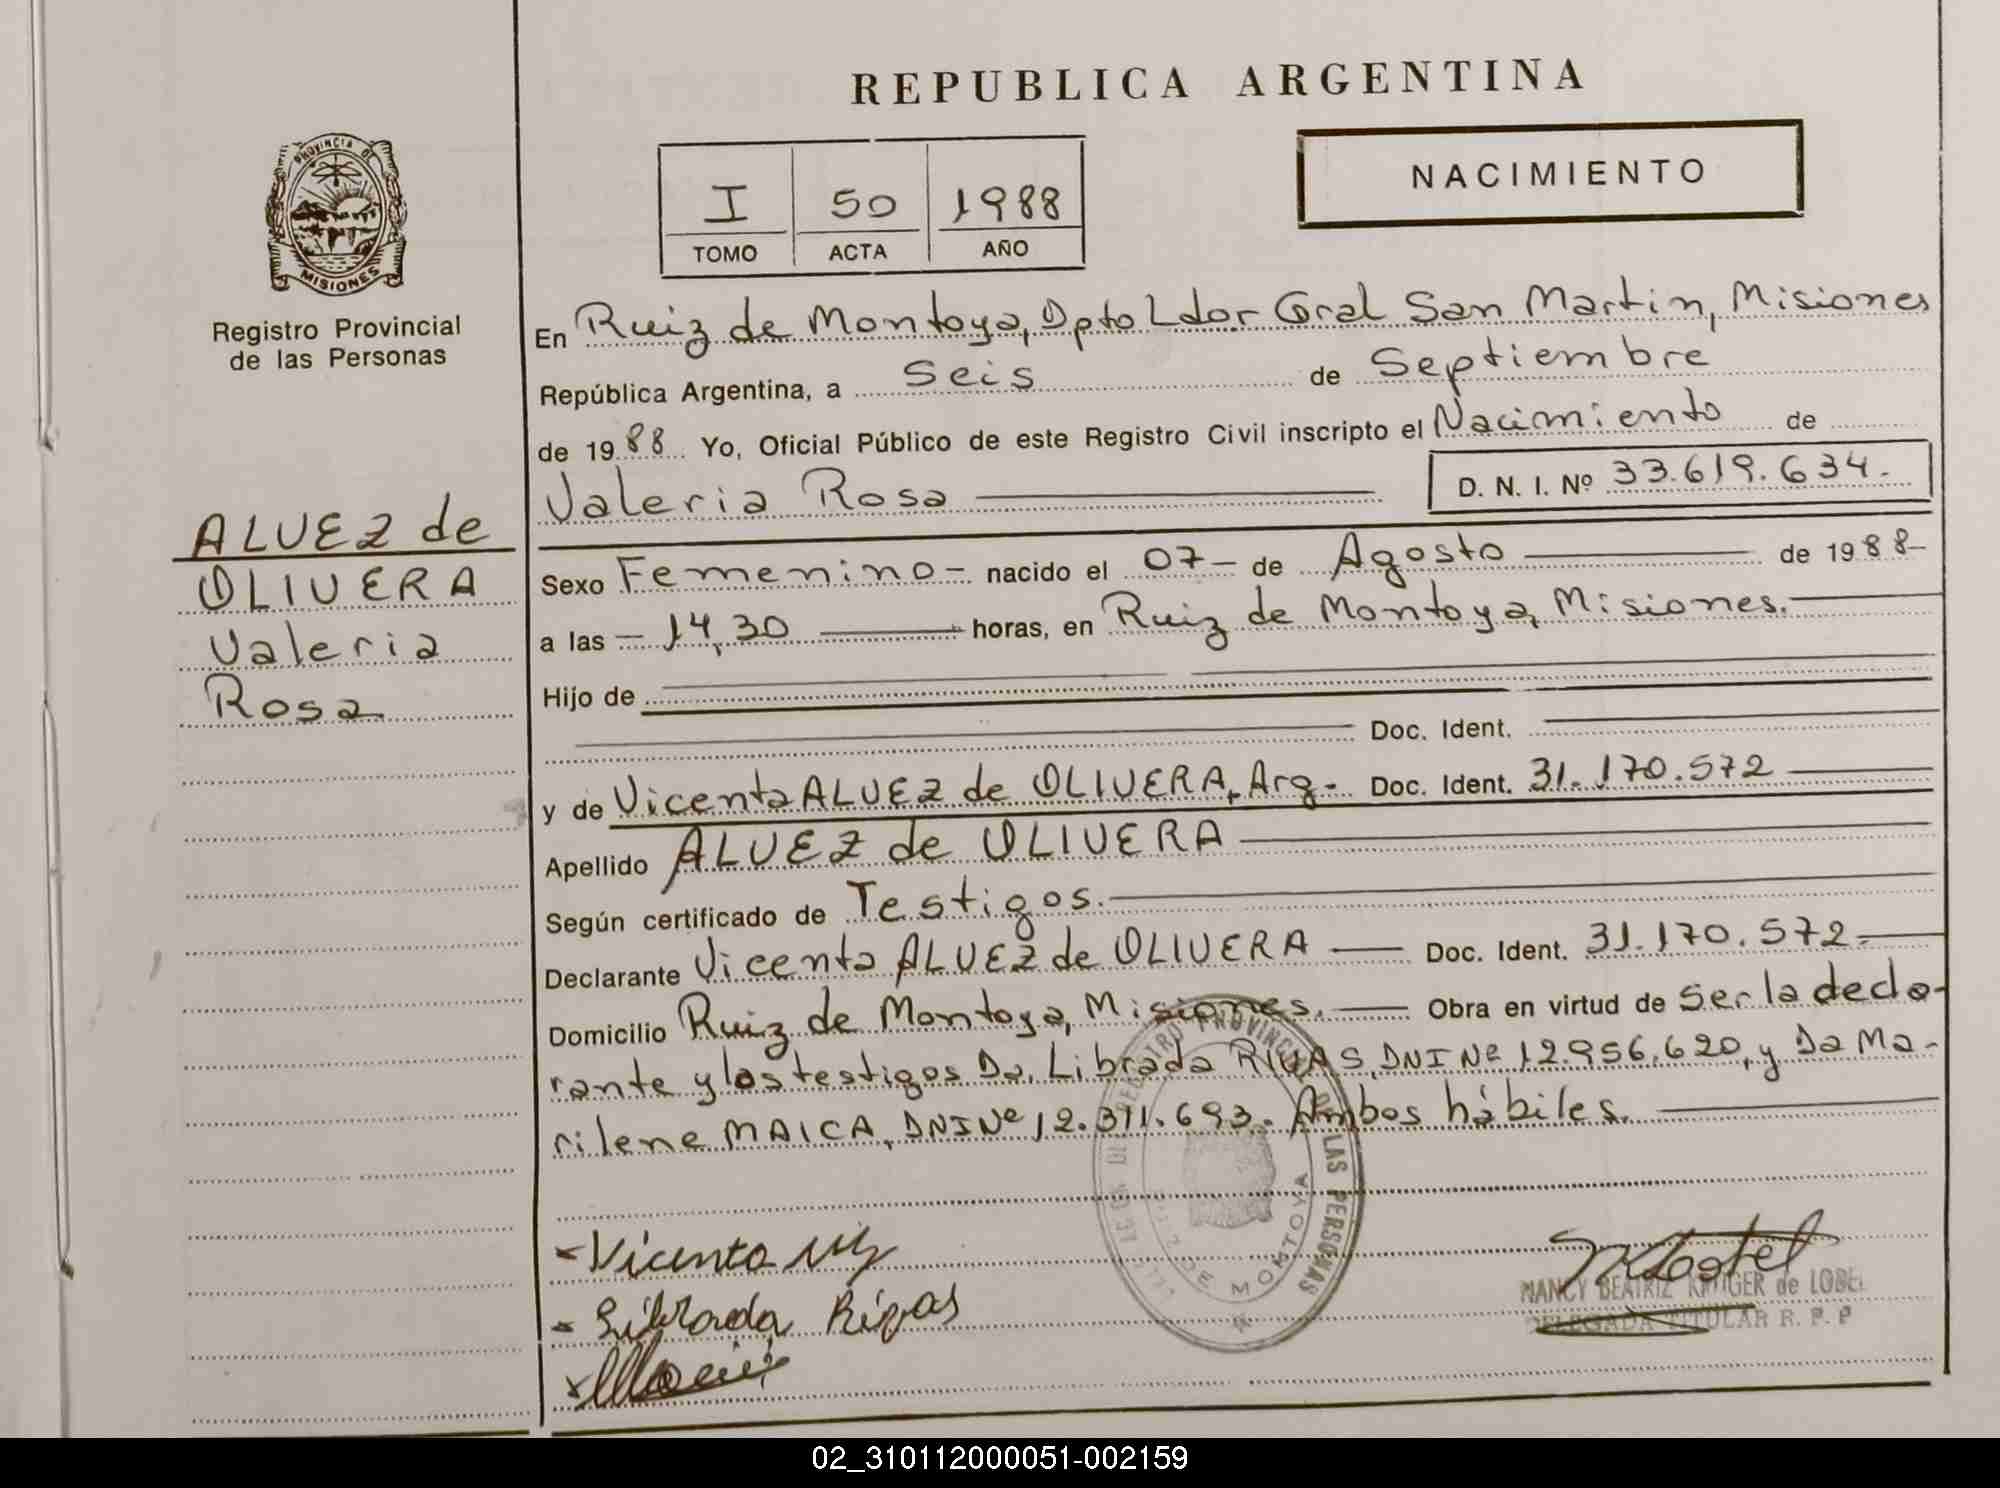 REPUBLICA ARGENTINA
PROVINCIA DE
MISIONES
Registro Provincial
de las Personas
I 50 1988
TOMO ACTA AÑO
NACIMIENTO
En Ruiz de Montoya, Dpto Ldor Gral San Martin, Misiones
República Argentina, a Seis de Septiembre
de 1988 Yo, Oficial Público de este Registro Civil inscripto el Nacimiento de
Valeria Rosa
D. N. I. Nº 33.619.634.
ALVEZ de
OLIVERA
Valeria
Rosa
Sexo Femenino- nacido el 07- de Agosto de 1988-
a las - 14,30 horas, en Ruiz de Montoya, Misiones.
Hijo de
Doc. Ident.
y de Vicenta ALVEZ de OLIVERA, Arg- Doc. Ident. 31.170.572
Apellido ALVEZ de OLIVERA
Según certificado de Testigos.
Declarante Vicenta ALVEZ de OLIVERA Doc. Ident. 31.170.572-
Domicilio Ruiz de Montoya, Misiones. Obra en virtud de ser la decla-
rante y los testigos Da. Librada RIVAS, DNI Nº 12.956.620, y Da Ma-
rilene MAICA, DNI Nº 12.371.693. Ambos hábiles.
PROVINCIAL DE LAS PERSONAS
DE MONTOYA
Vicenta
Librada Rivas
NANCY BEATRIZ KRUGER de LOBEL
DELEGADA TITULAR R. P. P
02_310112000051-002159